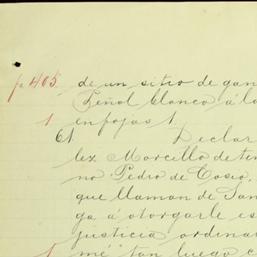 p 405 de un sitio de gan
Peñol blanco á lo
1 enfojas 1
61 Declar
lex Morcillo de ten
no Pedro de Cosio,
que llaman de San
ga á otorgarle es
justicia ordina
1 mé" tan luego c